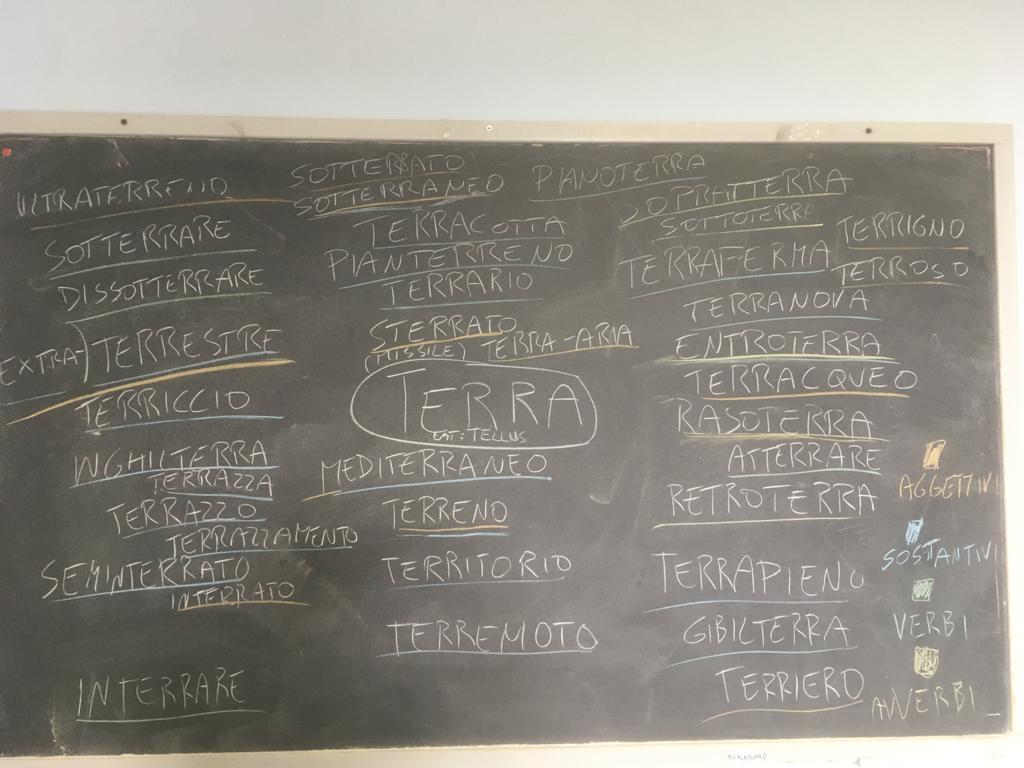 ULTRATERRENO
SOTTERRARE
DISSOTTERRARE
EXTRA-) TERRESTRE
TERRICCIO
INGHILTERRA
TERRAZZA
TERRAZZO
TERRAZZAMENTO
SEMINTERRATO
INTERRATO
INTERRARE
SOTTERRATO
SOTTERRANEO
TERRACOTTA
PIANTERRENO
TERRARIO
STERRATO
(MISSILE) TERRA-ARIA
TERRA
TELLUS
MEDITERRANEO
TERRENO
TERRITORIO
TERREMOTO
PIANOTERRA
SOPRATTERRA
SOTTOTERRA
TERRAFERMA
TERRANOVA
ENTROTERRA
TERRACQUEO
RASOTERRA
ATTERRARE
RETROTERRA
TERRAPIENO
GIBILTERRA
TERRIERO
TERRIGNO
TERROSO
AGGETTIVI
SOSTANTIVI
VERBI
AVVERBI